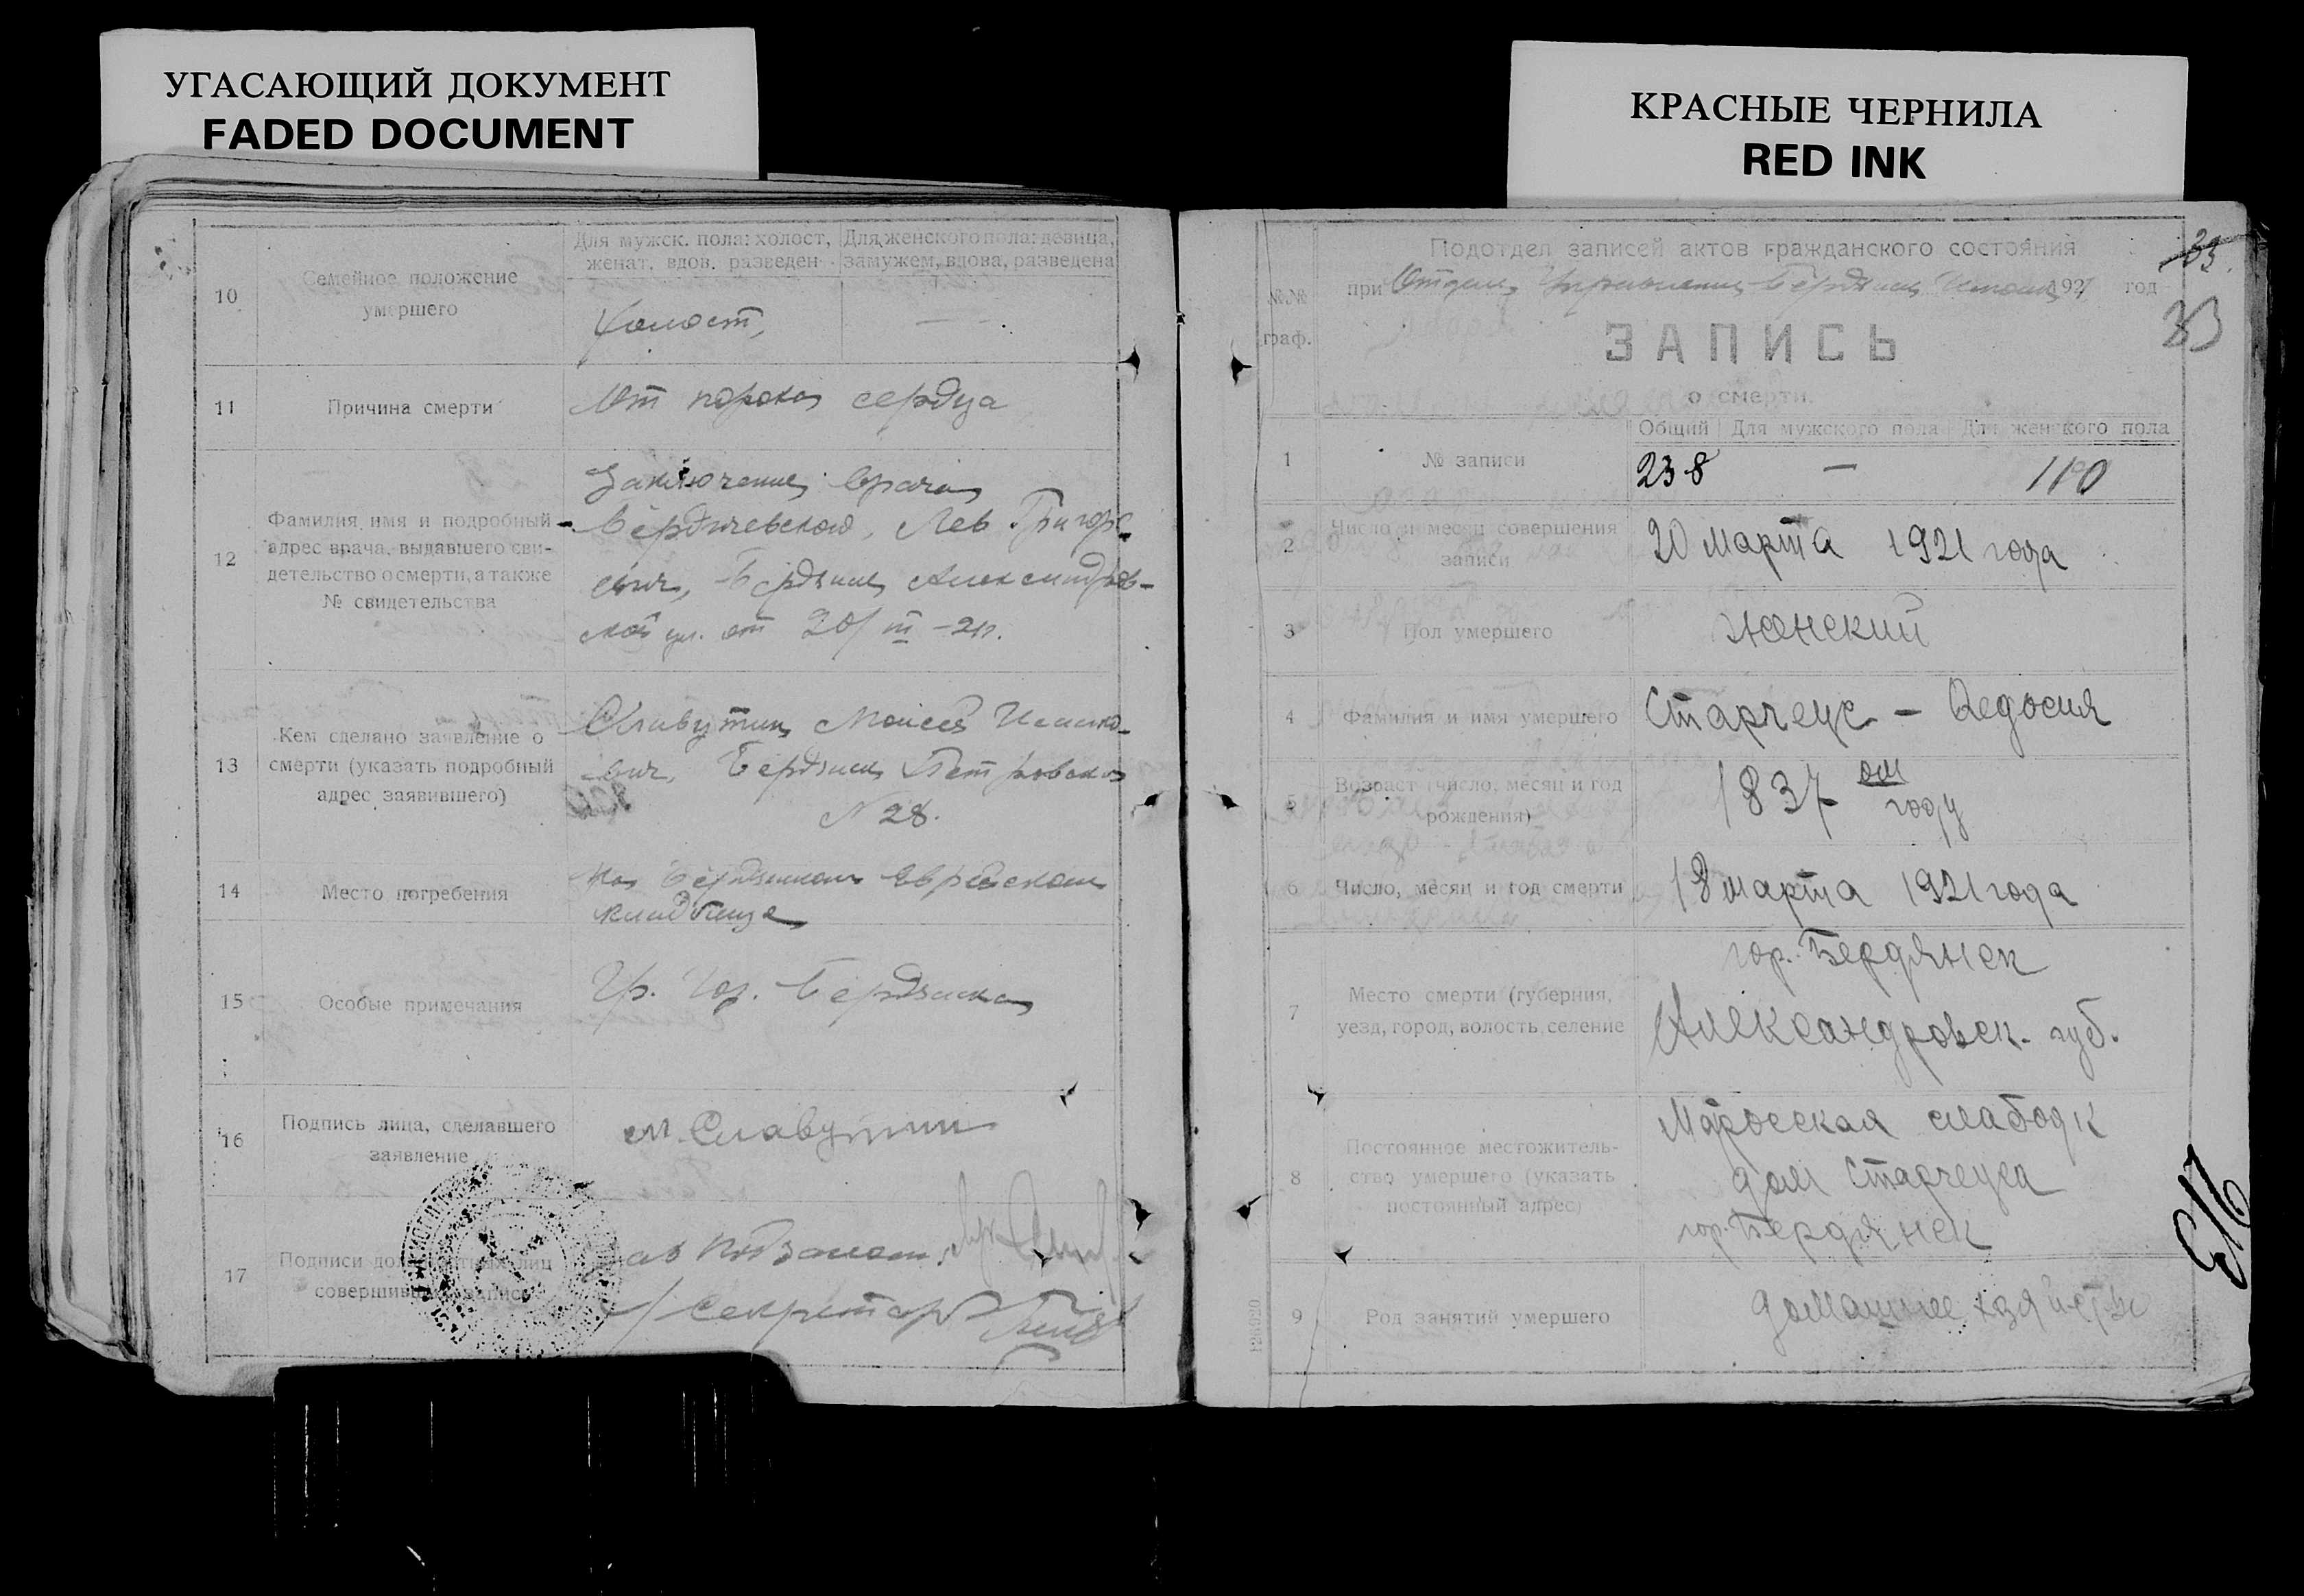 УГАСАЮЩИЙ ДОКУМЕНТ
FADED DOCUMENT
КРАСНЫЕ ЧЕРНИЛА
RED INK
10
Семейное положение
умершего
Для мужск. пола: холост,
женат, вдов, разведен
Для женского пола: девица,
замужем, вдова, разведена
Холост,
—
11
Причина смерти
От порока сердца
12
Фамилия, имя и подробный
адрес врача, выдавшего сви-
детельство о смерти, а также
№ свидетельства
Заключение врача
Бердичевского, Лев Григорь-
евич, Бердянск Александров-
ской ул. от 20/III-21г.
13
Кем сделано заявление о
смерти (указать подробный
адрес заявившего)
Славутин Моисей
евич, Бердянск Петровская
N 28.
14
Место погребения
На Бердянском Еврейском
кладбище
15
Особые примечания
Гр. Гор. Бердянска
16
Подпись лица, сделавшего
заявление
М. Славутин
17
Подписи
совершив
Зав
Секретарь
33.
33
№№
граф.
Подотдел записей актов гражданского состояния
при Отделе Управления Бердянск 1921 год
ЗАПИСЬ
о смерти.
1
№ записи
Общий
Для мужского пола
Для женского пола
238
—
110
2
Число и месяц совершения
записи
20 марта 1921 года
3
Пол умершего
женский
4
Фамилия и имя умершего
Старчеус – Федосия
5
Возраст (число, месяц и год
рождения)
1837 ом
году
6
Число, месяц и год смерти
18 марта 1921 года
7
Место смерти (губерния,
уезд, город, волость, селение
гор. Бердянск
Александровск. губ.
8
Постоянное местожитель-
ство умершего (указать
постоянный адрес)
слабодк
дом Старчеуса
гор. Бердянск
9
Род занятий умершего
домашнее